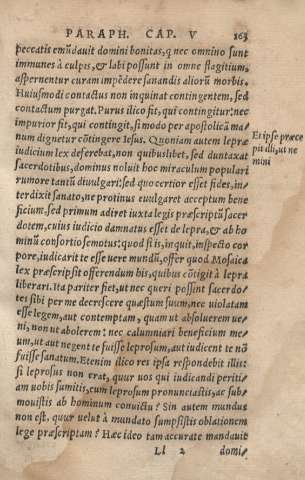 PARAPH. CAP. V 163
peccatis emũdauit domini bonitas, q nec omnino sunt
immunes à culpis, & labi possunt in omne flagitium,
aspernentur curam impẽdere sanandis aliorũ morbis.
Huiusmodi contactus non inquinat contingentem, sed
contactum purgat. Purus ilico fit, qui cõtingitur: nec
impurior fit, qui contingit, si modo per apostolicã ma-
num dignetur cõtingere Iesus. Quoniam autem lepræ
iudicium lex deferebat, non quibuslibet, sed duntaxat
sacerdotibus, dominus noluit hoc miraculum populari
rumore tantũ diuulgari: sed quo certior esset fides, in-
terdixit sanato, ne protinus euulgaret acceptum bene
ficium, sed primum adiret iuxta legis præscriptũ sacer
dotem, cuius iudicio damnatus esset de lepra, & ab ho
minũ consortio semotus: quod si is, inquit, inspecto cor
pore, iudicarit te esse uere mundũ, offer quod Mosaica
lex præscripsit offerendum his, quibus cõtigit à lepra
liberari. Ita pariter fiet, ut nec queri possint sacerdo-
tes sibi per me decrescere quæstum suum, nec uiolatam
esse legem, aut contemptam, quam ut absoluerem ue-
ni, non ut abolerem: nec calumniari beneficium me-
um, ut aut negent te fuisse leprosum, aut iudicent te nõ
fuisse sanatum. Etenim ilico res ipsa respondebit illis:
si leprosus non erat, quur uos qui iudicandi periti-
am uobis sumitis, eum leprosum pronunciastis, ac sub-
mouistis ab hominum conuictu? Sin autem mundus
non est, quur uelut à mundato sumpsistis oblationem
lege præscriptam? Hæc ideo tam accurate mandauit
Ll 2 domi-
Et ipse præce
pit illi, ut ne
mini